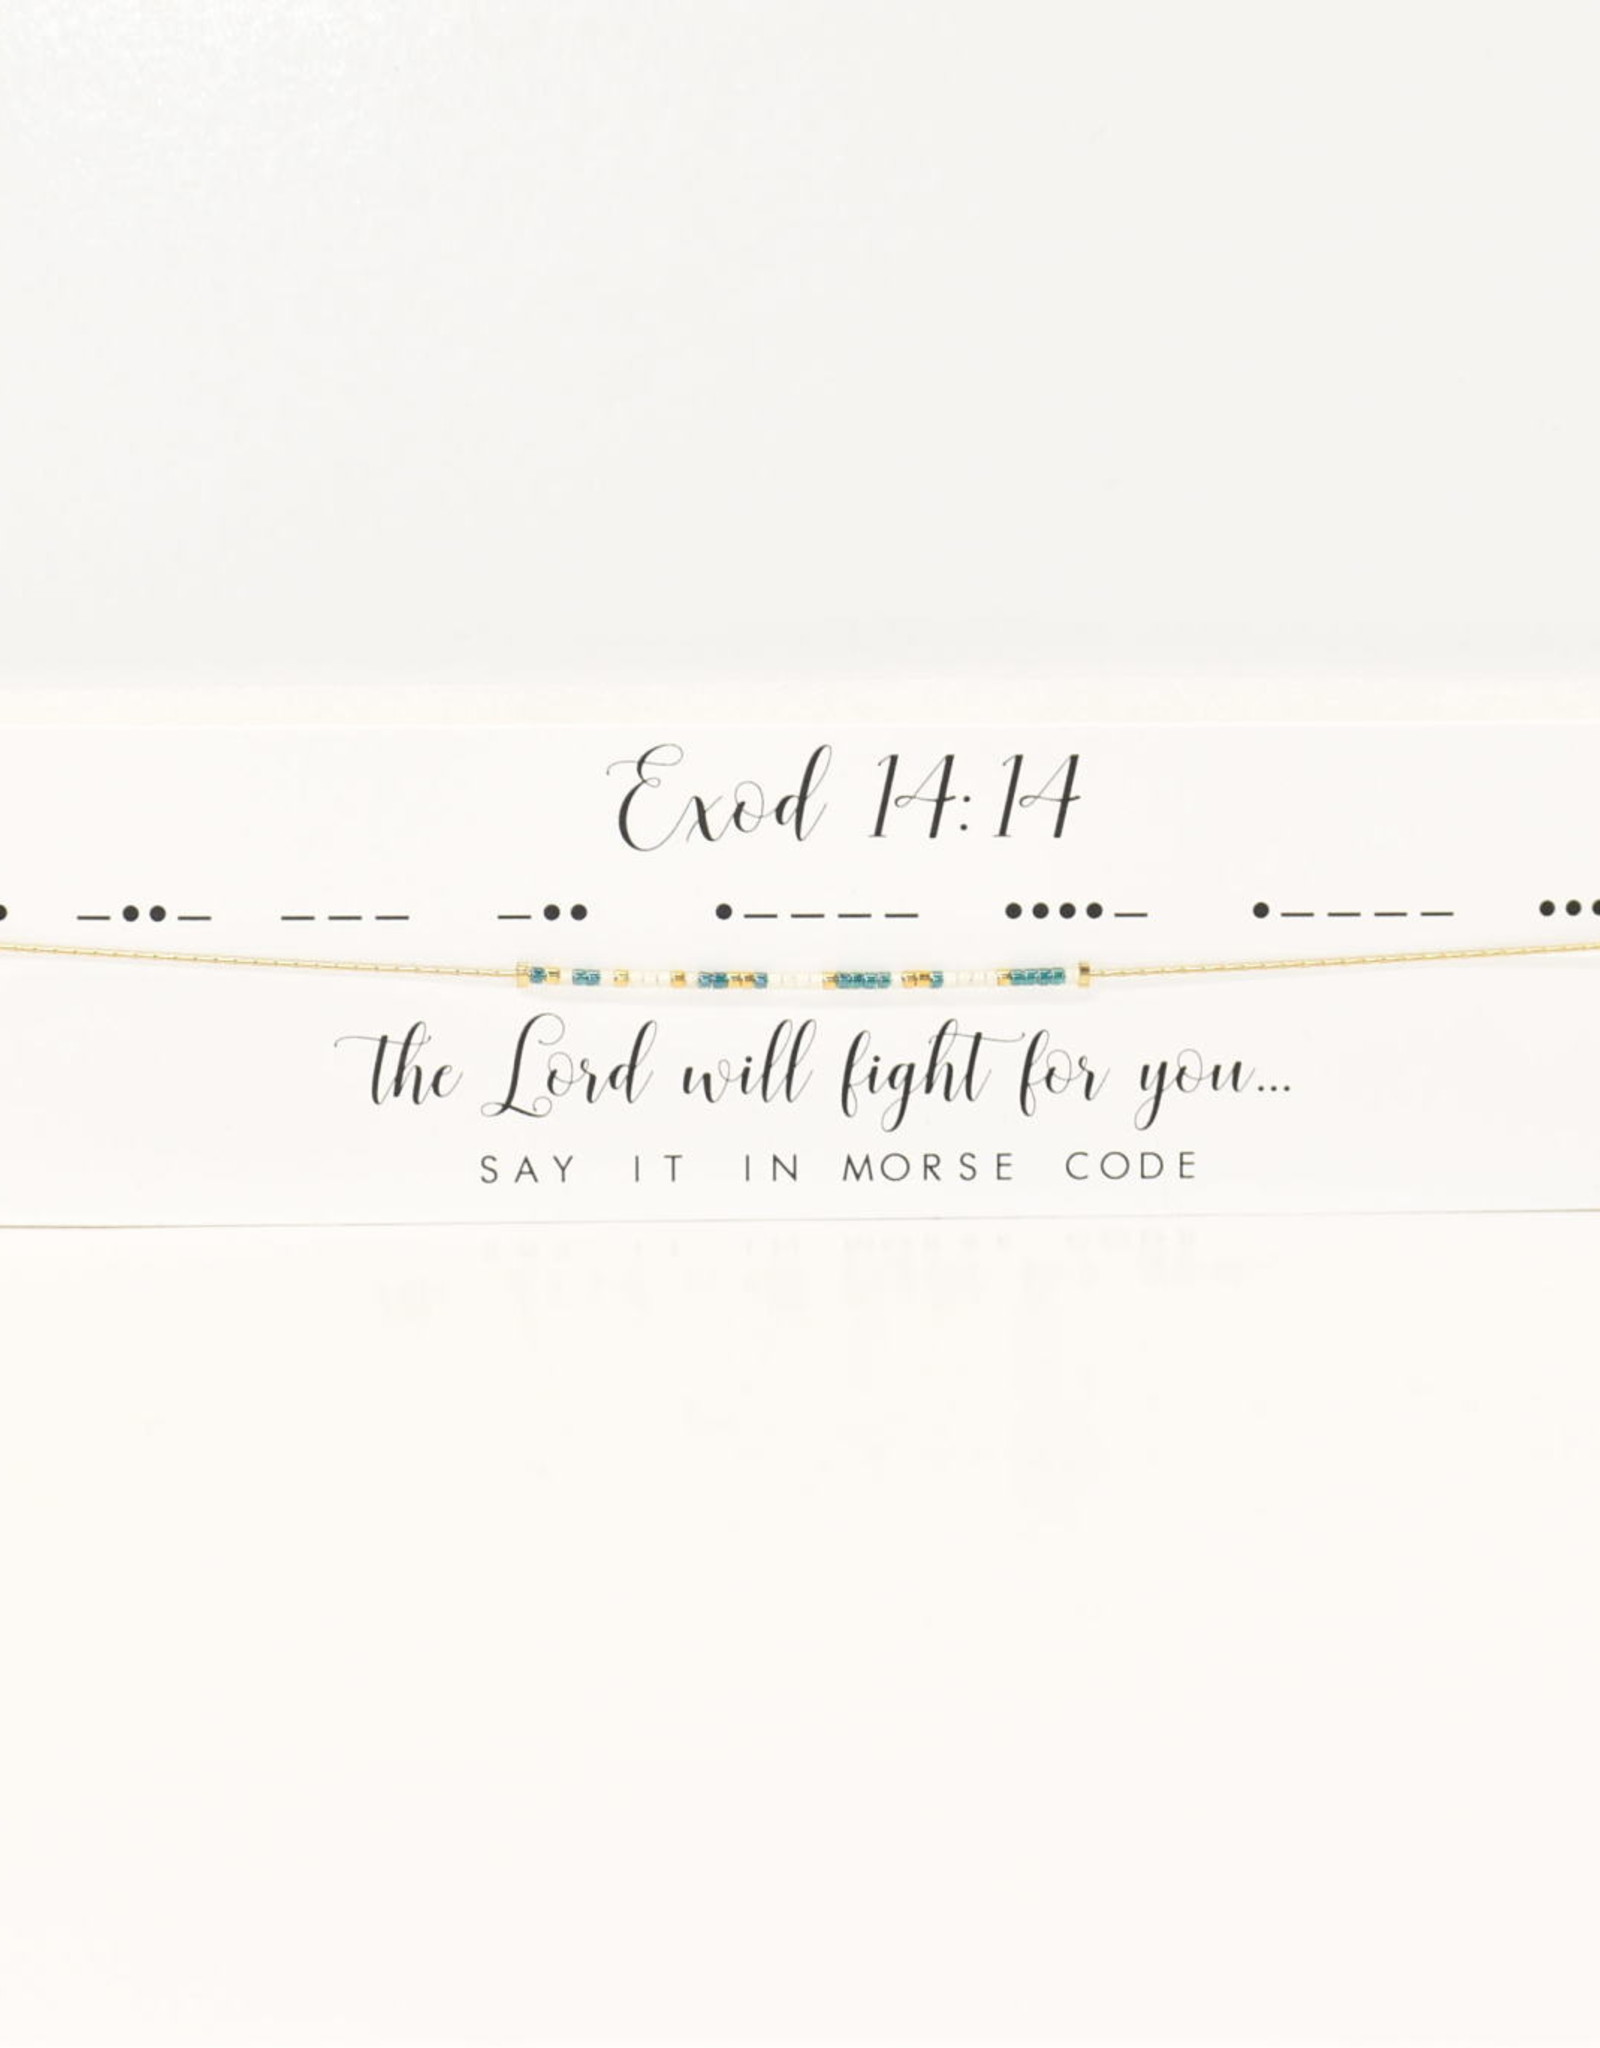 Exod 14:14
• —••— ——— —•• •———— ••••— •———— •••
the Lord will fight for you...
SAY IT IN MORSE CODE